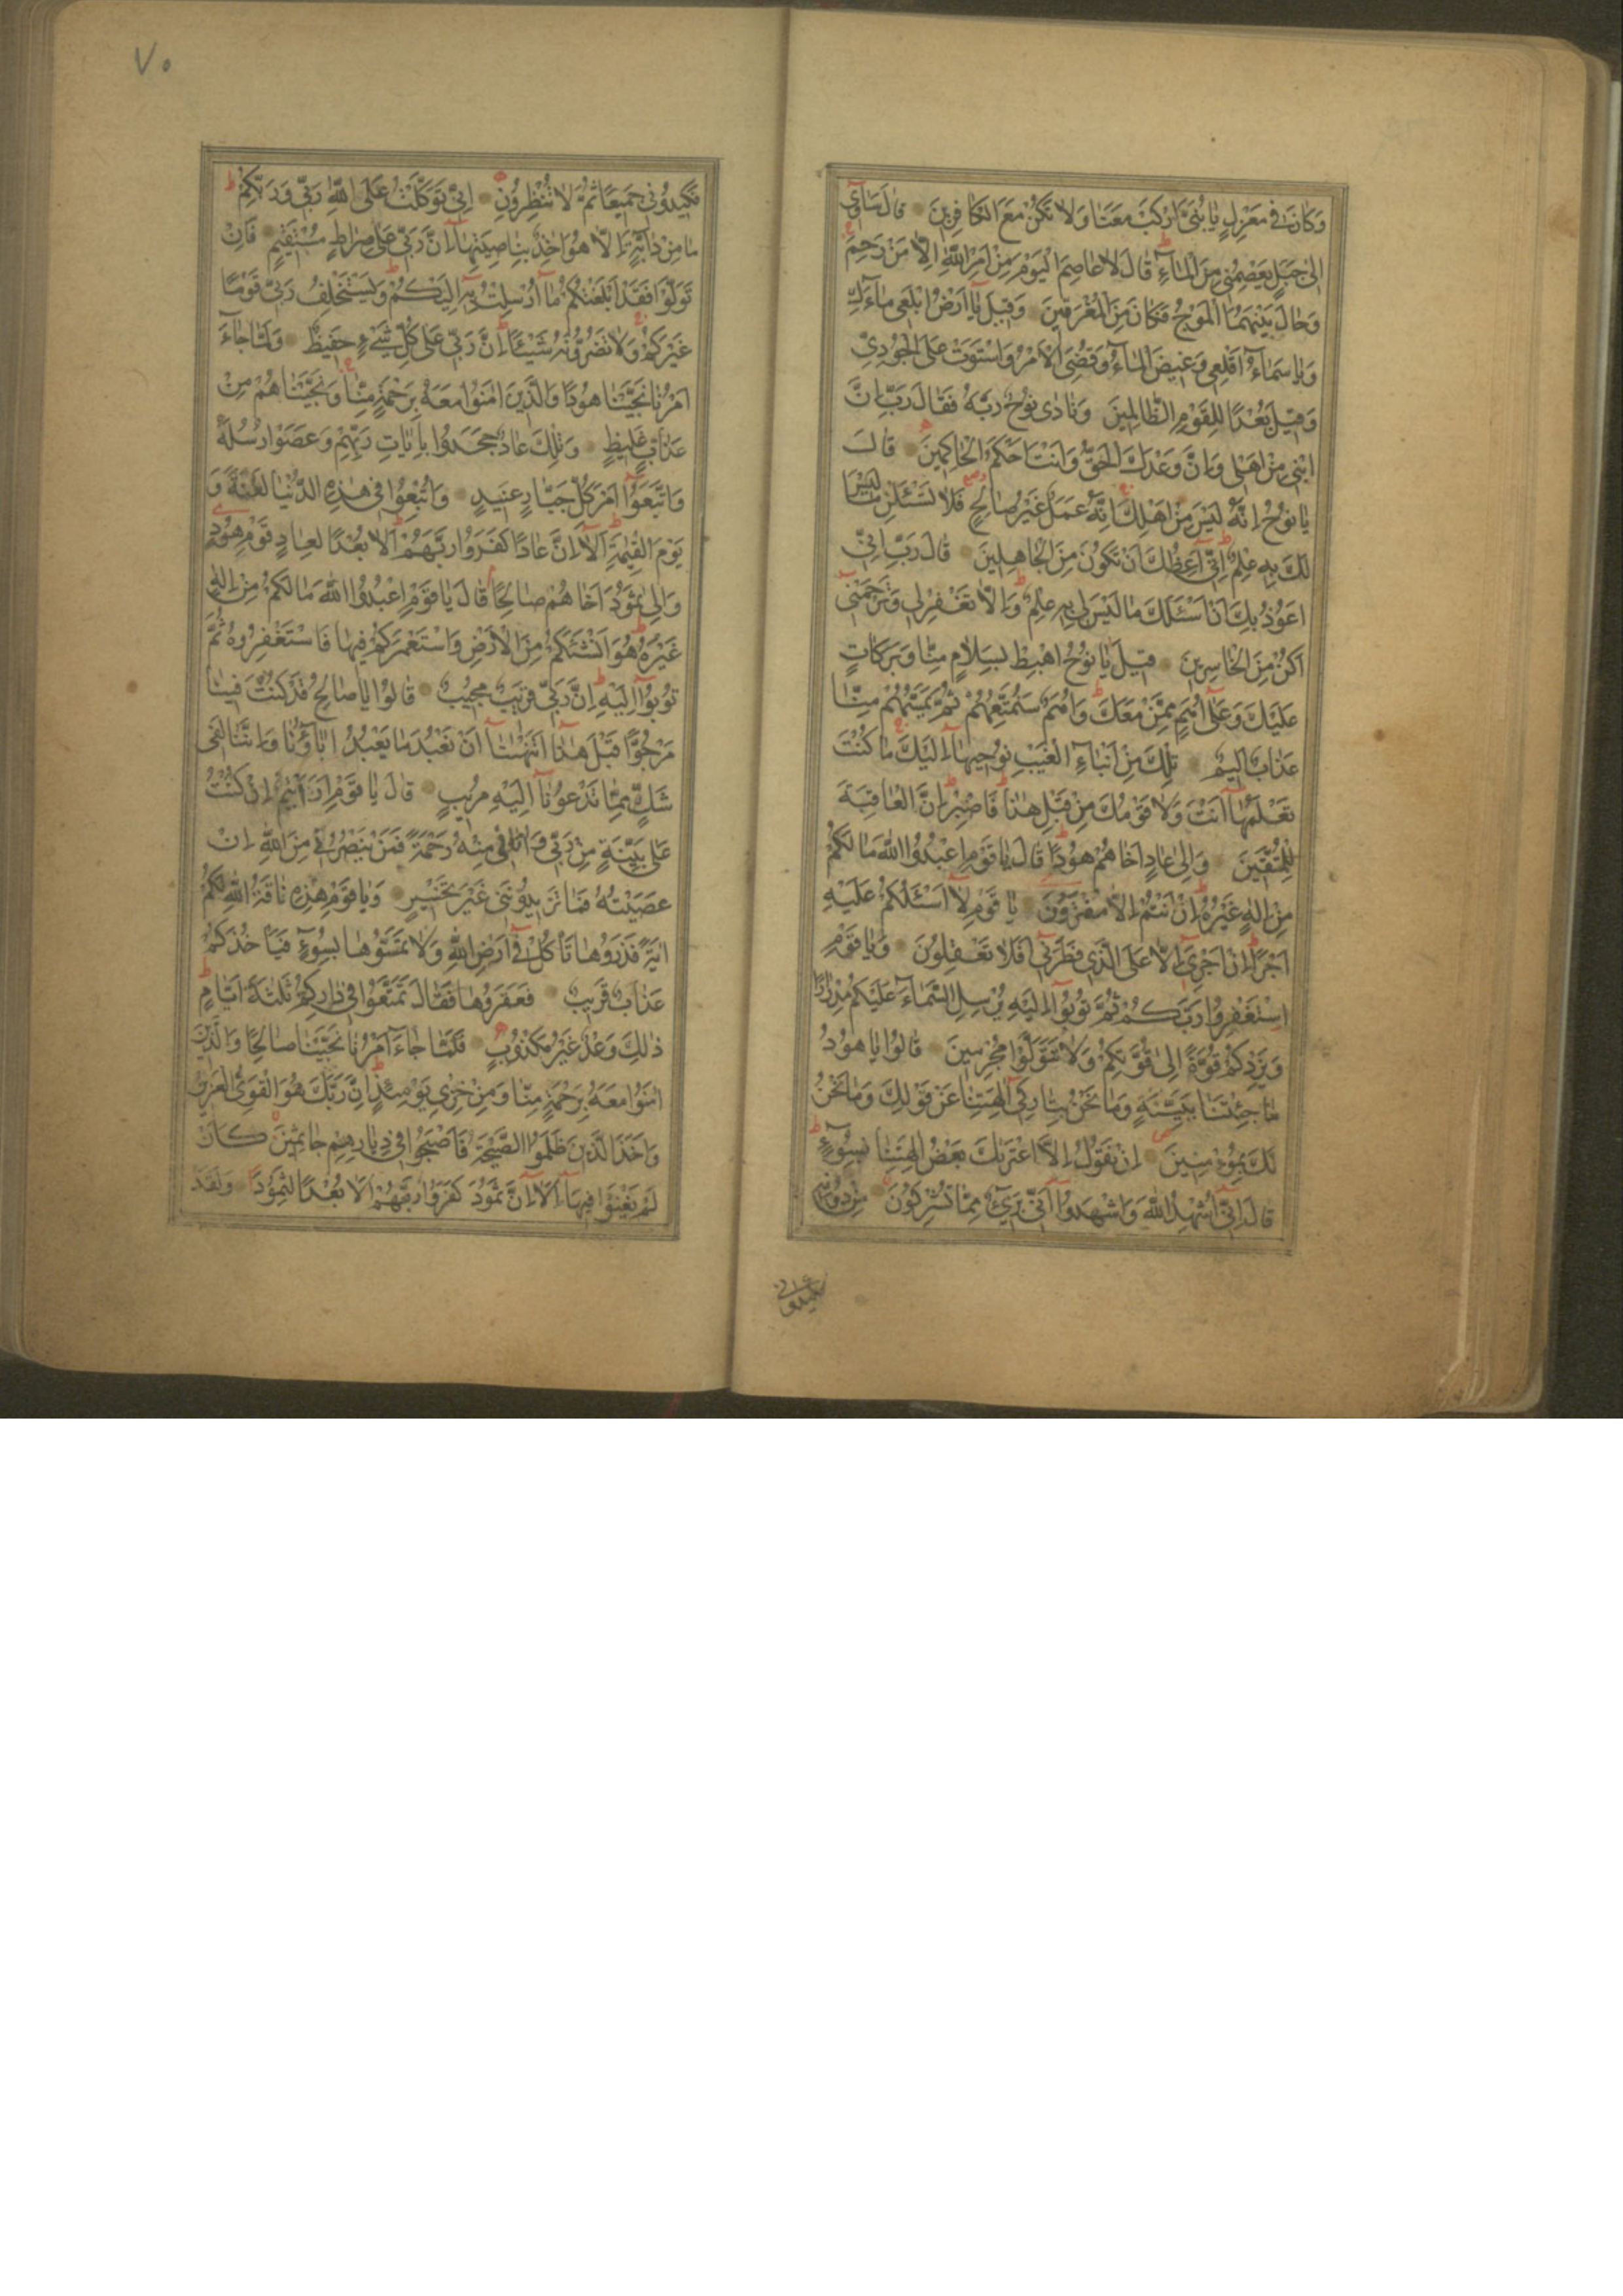 وَكَانَ فِي مَعْزِلٍ يَا بُنَيَّ ارْكَبْ مَعَنَا وَلَا تَكُنْ مَعَ الْكَافِرِينَ قَالَ سَآوِي
إِلَى جَبَلٍ يَعْصِمُنِي مِنَ الْمَاءِ قَالَ لَا عَاصِمَ الْيَوْمَ مِنْ أَمْرِ اللَّهِ إِلَّا مَنْ رَحِمَ
وَحَالَ بَيْنَهُمَا الْمَوْجُ فَكَانَ مِنَ الْمُغْرَقِينَ وَقِيلَ يَا أَرْضُ ابْلَعِي مَاءَكِ
وَيَا سَمَاءُ أَقْلِعِي وَغِيضَ الْمَاءُ وَقُضِيَ الْأَمْرُ وَاسْتَوَتْ عَلَى الْجُودِيِّ
وَقِيلَ بُعْدًا لِلْقَوْمِ الظَّالِمِينَ وَنَادَى نُوحٌ رَبَّهُ فَقَالَ رَبِّ إِنَّ
ابْنِي مِنْ أَهْلِي وَإِنَّ وَعْدَكَ الْحَقُّ وَأَنْتَ أَحْكَمُ الْحَاكِمِينَ قَالَ
يَا نُوحُ إِنَّهُ لَيْسَ مِنْ أَهْلِكَ إِنَّهُ عَمَلٌ غَيْرُ صَالِحٍ فَلَا تَسْئَلْنِ مَا لَيْسَ
لَكَ بِهِ عِلْمٌ إِنِّي أَعِظُكَ أَنْ تَكُونَ مِنَ الْجَاهِلِينَ قَالَ رَبِّ إِنِّي
أَعُوذُ بِكَ أَنْ أَسْئَلَكَ مَا لَيْسَ لِي بِهِ عِلْمٌ وَإِلَّا تَغْفِرْ لِي وَتَرْحَمْنِي
أَكُنْ مِنَ الْخَاسِرِينَ قِيلَ يَا نُوحُ اهْبِطْ بِسَلَامٍ مِنَّا وَبَرَكَاتٍ
عَلَيْكَ وَعَلَى أُمَمٍ مِمَّنْ مَعَكَ وَأُمَمٌ سَنُمَتِّعُهُمْ ثُمَّ يَمَسُّهُمْ مِنَّا
عَذَابٌ أَلِيمٌ تِلْكَ مِنْ أَنْبَاءِ الْغَيْبِ نُوحِيهَا إِلَيْكَ مَا كُنْتَ
تَعْلَمُهَا أَنْتَ وَلَا قَوْمُكَ مِنْ قَبْلِ هَذَا فَاصْبِرْ إِنَّ الْعَاقِبَةَ
لِلْمُتَّقِينَ وَإِلَى عَادٍ أَخَاهُمْ هُودًا قَالَ يَا قَوْمِ اعْبُدُوا اللَّهَ مَا لَكُمْ
مِنْ إِلَهٍ غَيْرُهُ إِنْ أَنْتُمْ إِلَّا مُفْتَرُونَ يَا قَوْمِ لَا أَسْئَلُكُمْ عَلَيْهِ
أَجْرًا إِنْ أَجْرِيَ إِلَّا عَلَى الَّذِي فَطَرَنِي أَفَلَا تَعْقِلُونَ وَيَا قَوْمِ
اسْتَغْفِرُوا رَبَّكُمْ ثُمَّ تُوبُوا إِلَيْهِ يُرْسِلِ السَّمَاءَ عَلَيْكُمْ مِدْرَارًا
وَيَزِدْكُمْ قُوَّةً إِلَى قُوَّتِكُمْ وَلَا تَتَوَلَّوْا مُجْرِمِينَ قَالُوا يَا هُودُ
مَا جِئْتَنَا بِبَيِّنَةٍ وَمَا نَحْنُ بِتَارِكِي آلِهَتِنَا عَنْ قَوْلِكَ وَمَا نَحْنُ
لَكَ بِمُؤْمِنِينَ إِنْ نَقُولُ إِلَّا اعْتَرَاكَ بَعْضُ آلِهَتِنَا بِسُوءٍ
قَالَ إِنِّي أُشْهِدُ اللَّهَ وَاشْهَدُوا أَنِّي بَرِيءٌ مِمَّا تُشْرِكُونَ مِنْ دُونِهِ
فكيدونى
٧٠
فَكِيدُونِي جَمِيعًا ثُمَّ لَا تُنْظِرُونِ إِنِّي تَوَكَّلْتُ عَلَى اللَّهِ رَبِّي وَرَبِّكُمْ
مَا مِنْ دَابَّةٍ إِلَّا هُوَ آخِذٌ بِنَاصِيَتِهَا إِنَّ رَبِّي عَلَى صِرَاطٍ مُسْتَقِيمٍ فَإِنْ
تَوَلَّوْا فَقَدْ أَبْلَغْتُكُمْ مَا أُرْسِلْتُ بِهِ إِلَيْكُمْ وَيَسْتَخْلِفُ رَبِّي قَوْمًا
غَيْرَكُمْ وَلَا تَضُرُّونَهُ شَيْئًا إِنَّ رَبِّي عَلَى كُلِّ شَيْءٍ حَفِيظٌ وَلَمَّا جَاءَ
أَمْرُنَا نَجَّيْنَا هُودًا وَالَّذِينَ آمَنُوا مَعَهُ بِرَحْمَةٍ مِنَّا وَنَجَّيْنَاهُمْ مِنْ
عَذَابٍ غَلِيظٍ وَتِلْكَ عَادٌ جَحَدُوا بِآيَاتِ رَبِّهِمْ وَعَصَوْا رُسُلَهُ
وَاتَّبَعُوا أَمْرَ كُلِّ جَبَّارٍ عَنِيدٍ وَأُتْبِعُوا فِي هَذِهِ الدُّنْيَا لَعْنَةً وَ
يَوْمَ الْقِيَمَةِ أَلَا إِنَّ عَادًا كَفَرُوا رَبَّهُمْ أَلَا بُعْدًا لِعَادٍ قَوْمِ هُودٍ
وَإِلَى ثَمُودَ أَخَاهُمْ صَالِحًا قَالَ يَا قَوْمِ اعْبُدُوا اللَّهَ مَا لَكُمْ مِنْ إِلَهٍ
غَيْرُهُ هُوَ أَنْشَأَكُمْ مِنَ الْأَرْضِ وَاسْتَعْمَرَكُمْ فِيهَا فَاسْتَغْفِرُوهُ ثُمَّ
تُوبُوا إِلَيْهِ إِنَّ رَبِّي قَرِيبٌ مُجِيبٌ قَالُوا يَا صَالِحُ قَدْ كُنْتَ فِينَا
مَرْجُوًّا قَبْلَ هَذَا أَتَنْهَانَا أَنْ نَعْبُدَ مَا يَعْبُدُ آبَاؤُنَا وَإِنَّنَا لَفِي
شَكٍّ مِمَّا تَدْعُونَا إِلَيْهِ مُرِيبٍ قَالَ يَا قَوْمِ أَرَأَيْتُمْ إِنْ كُنْتُ
عَلَى بَيِّنَةٍ مِنْ رَبِّي وَآتَانِي مِنْهُ رَحْمَةً فَمَنْ يَنْصُرُنِي مِنَ اللَّهِ إِنْ
عَصَيْتُهُ فَمَا تَزِيدُونَنِي غَيْرَ تَخْسِيرٍ وَيَا قَوْمِ هَذِهِ نَاقَةُ اللَّهِ لَكُمْ
آيَةً فَذَرُوهَا تَأْكُلْ فِي أَرْضِ اللَّهِ وَلَا تَمَسُّوهَا بِسُوءٍ فَيَأْخُذَكُمْ
عَذَابٌ قَرِيبٌ فَعَقَرُوهَا فَقَالَ تَمَتَّعُوا فِي دَارِكُمْ ثَلَثَةَ أَيَّامٍ
ذَلِكَ وَعْدٌ غَيْرُ مَكْذُوبٍ فَلَمَّا جَاءَ أَمْرُنَا نَجَّيْنَا صَالِحًا وَالَّذِينَ
آمَنُوا مَعَهُ بِرَحْمَةٍ مِنَّا وَمِنْ خِزْيِ يَوْمِئِذٍ إِنَّ رَبَّكَ هُوَ الْقَوِيُّ الْعَزِيزُ
وَأَخَذَ الَّذِينَ ظَلَمُوا الصَّيْحَةُ فَأَصْبَحُوا فِي دِيَارِهِمْ جَاثِمِينَ كَأَنْ
لَمْ يَغْنَوْا فِيهَا أَلَا إِنَّ ثَمُودَ كَفَرُوا رَبَّهُمْ أَلَا بُعْدًا لِثَمُودَ وَلَقَدْ